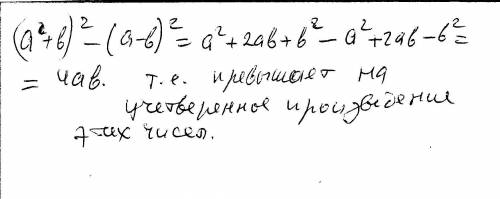 (a²+b)²-(a-b)²=a²+2ab+b²-a²+2ab-b²=
=4ab. т.е. превышает на
учетверенное произведение
этих чисел.